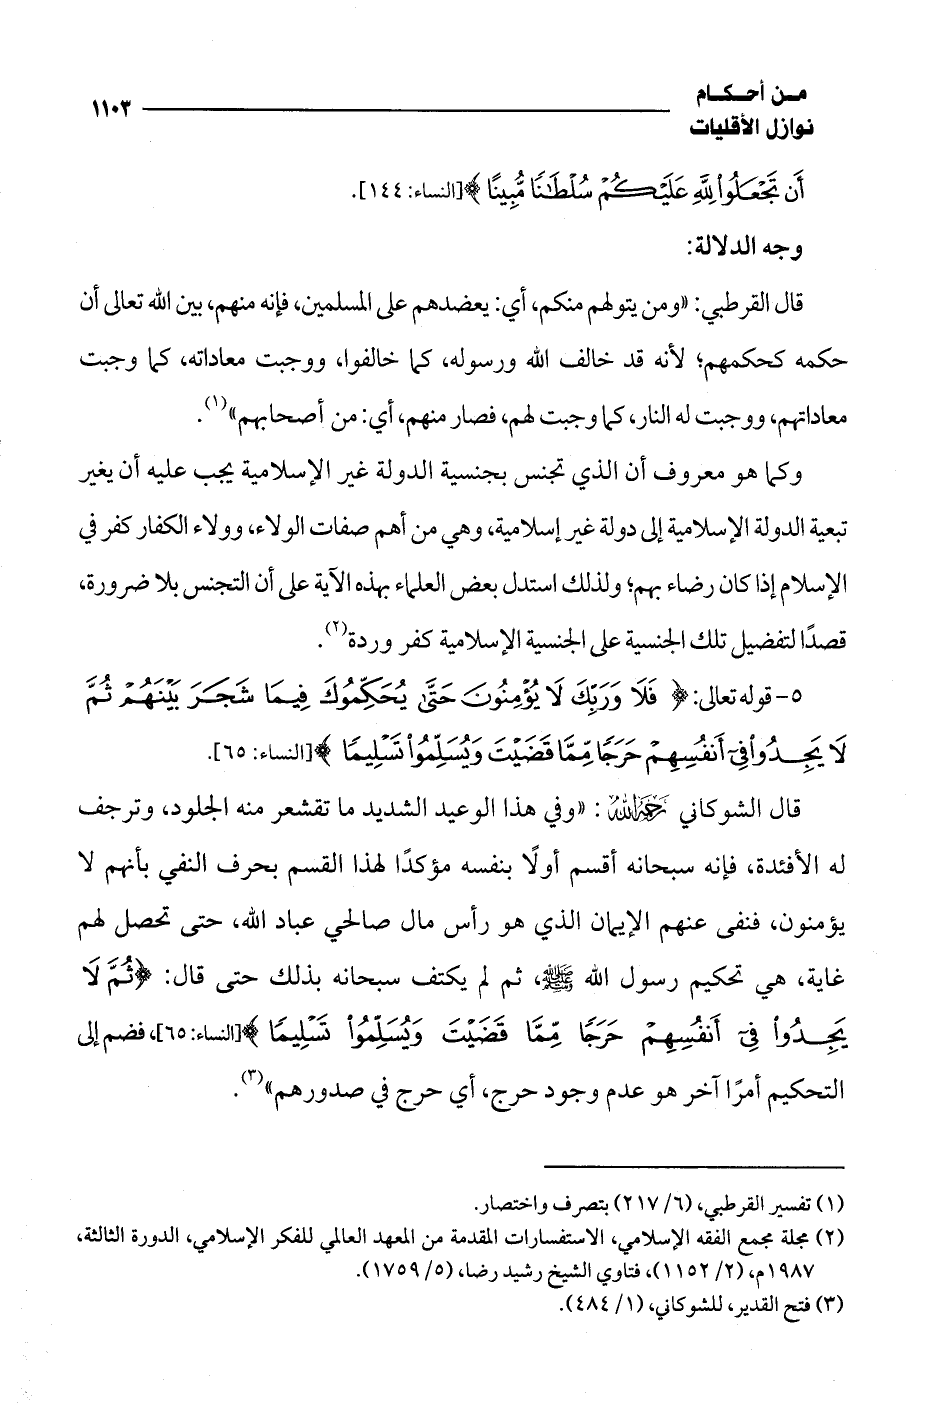 من أحكام
نوازل الأقليات
١١٠٣
أَن تَجْعَلُوا۟ لِلَّهِ عَلَيْكُمْ سُلْطَٰنًا مُّبِينًا ﴾[النساء: ١٤٤].
وجه الدلالة:
قال القرطبي: «ومن يتولهم منكم، أي: يعضدهم على المسلمين، فإنه منهم، بين الله تعالى أن
حكمه كحكمهم؛ لأنه قد خالف الله ورسوله، كما خالفوا، ووجبت معاداته، كما وجبت
معاداتهم، ووجبت له النار، كما وجبت لهم، فصار منهم، أي: من أصحابهم»(١).
وكما هو معروف أن الذي تجنس بجنسية الدولة غير الإسلامية يجب عليه أن يغير
تبعية الدولة الإسلامية إلى دولة غير إسلامية، وهي من أهم صفات الولاء، وولاء الكفار كفر في
الإسلام إذا كان رضاء بهم؛ ولذلك استدل بعض العلماء بهذه الآية على أن التجنس بلا ضرورة،
قصدًا لتفضيل تلك الجنسية على الجنسية الإسلامية كفر وردة(٢).
٥- قوله تعالى: ﴿ فَلَا وَرَبِّكَ لَا يُؤْمِنُونَ حَتَّىٰ يُحَكِّمُوكَ فِيمَا شَجَرَ بَيْنَهُمْ ثُمَّ
لَا يَجِدُوا۟ فِىٓ أَنفُسِهِمْ حَرَجًا مِّمَّا قَضَيْتَ وَيُسَلِّمُوا۟ تَسْلِيمًا ﴾[النساء: ٦٥].
قال الشوكاني رَحِمَهُ اللَّهُ: «وفي هذا الوعيد الشديد ما تقشعر منه الجلود، وترجف
له الأفئدة، فإنه سبحانه أقسم أولًا بنفسه مؤكدًا لهذا القسم بحرف النفي بأنهم لا
يؤمنون، فنفى عنهم الإيمان الذي هو رأس مال صالحي عباد الله، حتى تحصل لهم
غاية، هي تحكيم رسول الله ﷺ، ثم لم يكتف سبحانه بذلك حتى قال: ﴿ثُمَّ لَا
يَجِدُوا۟ فِىٓ أَنفُسِهِمْ حَرَجًا مِّمَّا قَضَيْتَ وَيُسَلِّمُوا۟ تَسْلِيمًا ﴾[النساء: ٦٥]، فضم إلى
التحكيم أمرًا آخر هو عدم وجود حرج، أي حرج في صدورهم»(٣).
(١) تفسير القرطبي، (٦/ ٢١٧) بتصرف واختصار.
(٢) مجلة مجمع الفقه الإسلامي، الاستفسارات المقدمة من المعهد العالمي للفكر الإسلامي، الدورة الثالثة،
١٩٨٧م، (٢/ ١١٥٢)، فتاوي الشيخ رشيد رضا، (٥/ ١٧٥٩).
(٣) فتح القدير، للشوكاني، (١/ ٤٨٤).